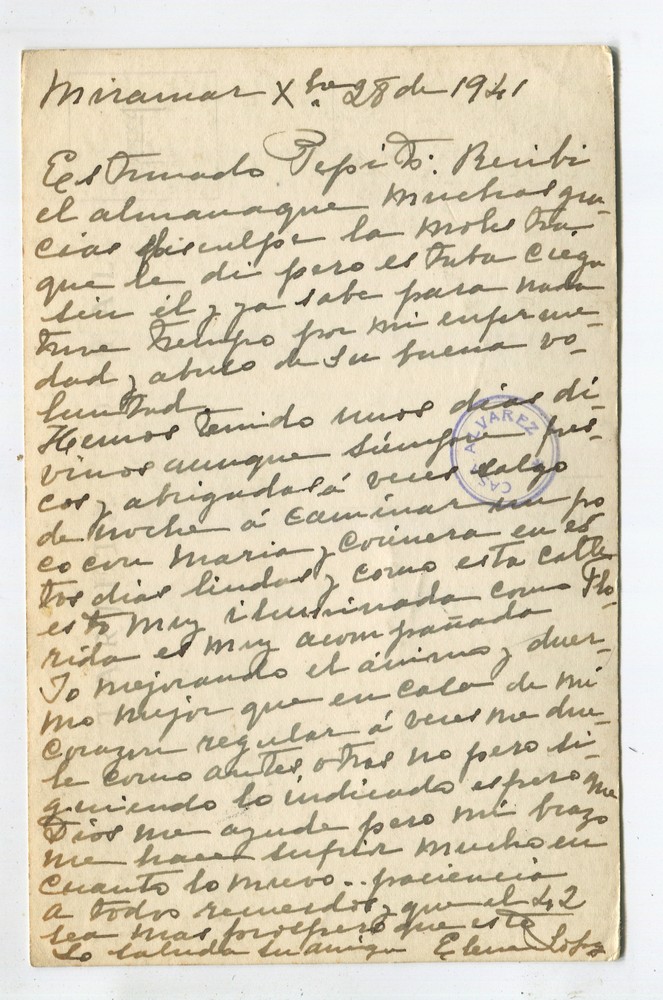 Miramar Xbre 28 de 1941
Estimado Pepito: Recibi
el almanaque muchas gra-
cias disculpe la molestia
que le di pero estaba ciega
sin él y ya sabe para nada
tuve tiempo por mi enferme-
dad y abuso de su buena vo-
luntad.
Hemos tenido unos dias di-
vinos aunque siempre fres-
cos y abrigadas á veces salgo
de noche á caminar un po
co con Maria y cocinera en es
tos dias lindos y como esta calle
esta muy iluminada como Flo-
rida es muy acompañada
Yo mejorando el ánimo y duer-
mo mejor que en casa de mi
corazon regular á veces me due-
le como antes otras no pero si-
guiendo lo indicado espero que
Dios me ayude pero mi brazo
me hace sufrir mucho en
cuanto lo muevo.. paciencia
a todos recuerdos y que el 42
sea mas prospero que este
Lo saluda su amiga Elena
CASA ALVAREZ